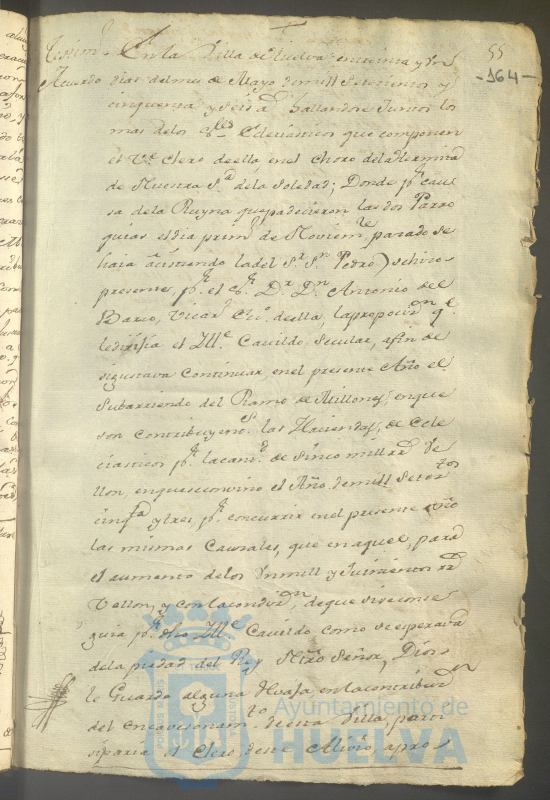 55
-164-
Acuerdo
En la Villa de Huelva en treinta y un
dias del mes de Mayo de mill setecientos y
cinquenta y seis a.s hallandose Juntos los
mas de los S.res Eclesiasticos que componen
el V.e Clero de ella, en el Choro de la Hermita
de Nuestra S.ra de la Soledad; Donde p.r cau
sa de la Ruyna que padecieron las dos Parro
quias el dia prim.o de Noviem.re pasado se
hacia
la del S.r S.n Pedro) se hizo
presente, p.r el S.r D.r D.n Antonio del
Barco, Vicar.o de ella, la proposicion q.e
le dirijia el Ill.e Cavildo Secular, a fin de
si gustava Continuar en el presente Año el
Subarriendo del Ramo de Millones, en que
son Contribuyent.s las Haciendas, de Ecle
ciasticos p.r la cant.d de Sinco mill r.s de
llon, en que se convino el Año de mill Setez.tos
cinq.ta y tres, p.r concurrir en el presente año
las mismas Causales, que en aquel, para
el aumento de los Un mill y quinientos r.s
Vellon, y con la condicion, de que si se conse
guia p.r dho Ill.e Cavildo como se esperava
de la piedad del Rey Ntro Señor, Dios
le Guarde alguna Revaja, en la contribucion
del Encavezonam.to de esta Villa, parti
siparia el Clero de este Alivio, apro
Ayuntamiento de
HUELVA